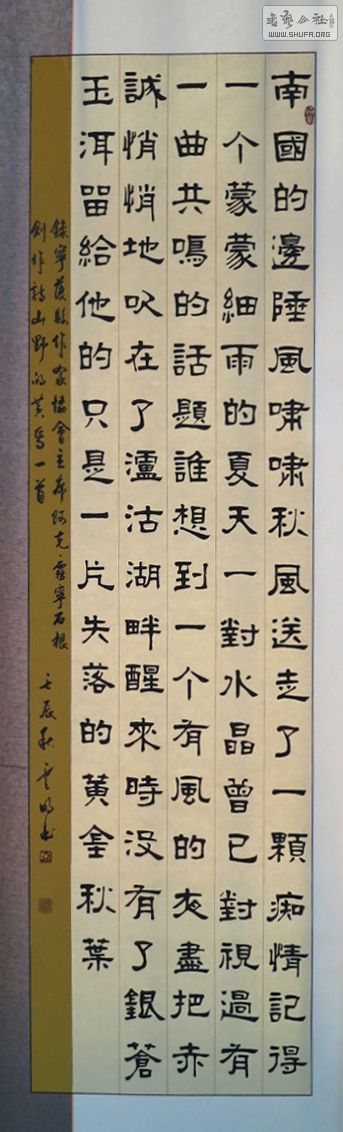 書藝公社
WWW.SHUFA.ORG
南國的邊陲風嘯嘯秋風送走了一顆痴情記得
一个蒙蒙細雨的夏天一對水晶曾已對視過有
一曲共鳴的話題誰想到一个有風的夜盡把赤
誠悄悄地吹在了瀘沽湖畔醒來時没有了銀蒼
玉洱留給他的只是一片失落的黄金秋葉
錄寧蒗縣作家協會主席阿克·霍寧石根
創作詩山野的黄一首
壬辰秋雲明书